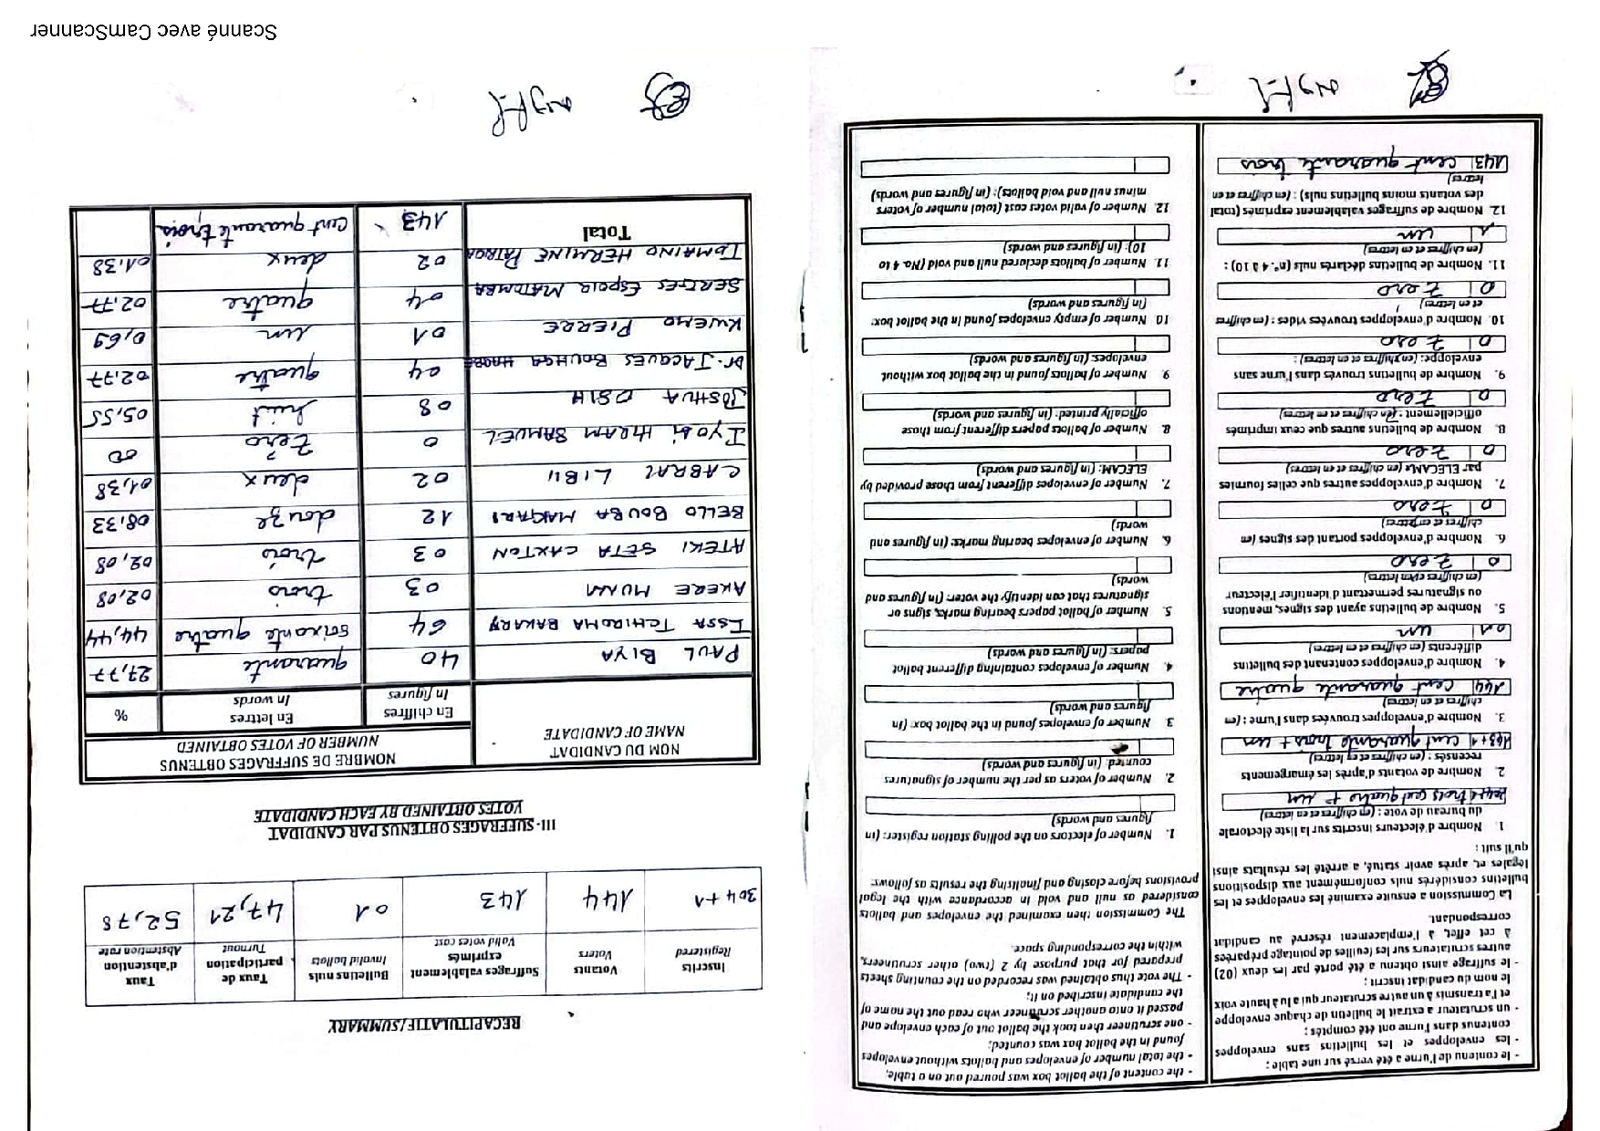 - le contenu de l'urne a été versé sur une table ;
- les enveloppes et les bulletins sans enveloppes
contenus dans l'urne ont été comptés ;
- un scrutateur a extrait le bulletin de chaque enveloppe
et l'a transmis à un autre scrutateur qui a lu à haute voix
le nom du candidat inscrit ;
- le suffrage ainsi obtenu a été porté par les deux (02)
autres scrutateurs sur les feuilles de pointage préparées
à cet effet, à l'emplacement réservé au candidat
correspondant.
La Commission a ensuite examiné les enveloppes et les
bulletins considérés nuls conformément aux dispositions
légales et, après avoir statué, a arrêté les résultats ainsi
qu'il suit :
1. Nombre d'électeurs inscrits sur la liste électorale
du bureau de vote : (en chiffres et en lettres)
trois cent quatre + un
2. Nombre de votants d'après les émargements
recensés : (en chiffres et en lettres)
143+1 cent quarante trois + un
3. Nombre d'enveloppes trouvées dans l'urne : (en
chiffres et en lettres)
144 cent quarante quatre
4. Nombre d'enveloppes contenant des bulletins
différents (en chiffres et en lettres)
01 un
5. Nombre de bulletins ayant des signes, mentions
ou signatures permettant d'identifier l'électeur
(en chiffres et en lettres)
0 Zero
6. Nombre d'enveloppes portant des signes (en
chiffres et en lettres)
0 Zero
7. Nombre d'enveloppes autres que celles fournies
par ELECAM (en chiffres et en lettres)
0 Zero
8. Nombre de bulletins autres que ceux imprimés
officiellement : (en chiffres et en lettres)
0 Zero
9. Nombre de bulletins trouvés dans l'urne sans
enveloppe: (en chiffres et en lettres) :
0 Zero
10. Nombre d'enveloppes trouvées vides : (en chiffres
et en lettres)
0 Zero
11. Nombre de bulletins déclarés nuls (n°. 4 à 10) :
(en chiffres et en lettres)
1 un
12. Nombre de suffrages valablement exprimés (total
des votants moins bulletins nuls) : (en chiffres et en
lettres)
143 cent quarante trois
- the content of the ballot box was poured out on a table,
- the total number of envelopes and ballots without envelopes
found in the ballot box was counted;
- one scrutineer then took the ballot out of each envelope and
passed it onto another scrutineer who read out the name of
the candidate inscribed on it;
- The vote thus obtained was recorded on the counting sheets
prepared for that purpose by 2 (two) other scrutineers,
within the corresponding space.
The Commission then examined the envelopes and ballots
considered as null and void in accordance with the legal
provisions before closing and finalising the results as follows:
1. Number of electors on the polling station register: (in
figures and words)
2. Number of voters as per the number of signatures
counted: (in figures and words)
3 Number of envelopes found in the ballot box: (in
figures and words)
4. Number of envelopes containing different ballot
papers: (in figures and words)
5. Number of ballot papers bearing marks, signs or
signatures that can identify the voter: (in figures and
words)
6. Number of envelopes bearing marks: (in figures and
words)
7. Number of envelopes different from those provided by
ELECAM: (in figures and words)
8. Number of ballots papers different from those
officially printed: (in figures and words)
9 Number of ballots found in the ballot box without
envelopes: (in figures and words)
10 Number of empty envelopes found in the ballot box:
(in figures and words)
11. Number of ballots declared null and void (No. 4 to
10): (in figures and words)
12. Number of valid votes cast (total number of voters
minus null and void ballots): (in figures and words)
RECAPITULATIF/SUMMARY
Inscrits
Registered
Votants
Voters
Suffrages valablement
exprimés
Valid votes cast
Bulletins nuls
Invalid ballots
Taux de
participation
Turnout
Taux
d'abstention
Abstention rate
304+1 144 143 01 47,21 52,78
III- SUFFRAGES OBTENUS PAR CANDIDAT
VOTES OBTAINED BY EACH CANDIDATE
NOM DU CANDIDAT
NAME OF CANDIDATE
NOMBRE DE SUFFRAGES OBTENUS
NUMBER OF VOTES OBTAINED
En chiffres
In figures
En lettres
In words
%
PAUL BIYA 40 quarante 27,77
ISSA TCHIROMA BAKARY 64 soixante quatre 44,44
AKERE MUNA 03 trois 02,08
ATEKI SETA CAXTON 03 trois 02,08
BELLO BOUBA MAIGARI 12 douze 08,33
CABRAL LIBII 02 deux 01,38
IYODI HIRAM SAMUEL 0 Zéro 00
JOSHUA OSIH 08 huit 05,55
Dr. JACQUES BOUHGA 04 quatre 02,77
KWEMO PIERRE 01 un 0,69
SERGES ESPOIR MATOMBA 04 quatre 02,77
TOMAINO HERMINE PATRICIA 02 deux 01,38
Total 143 cent quarante trois
Scanné avec CamScanner